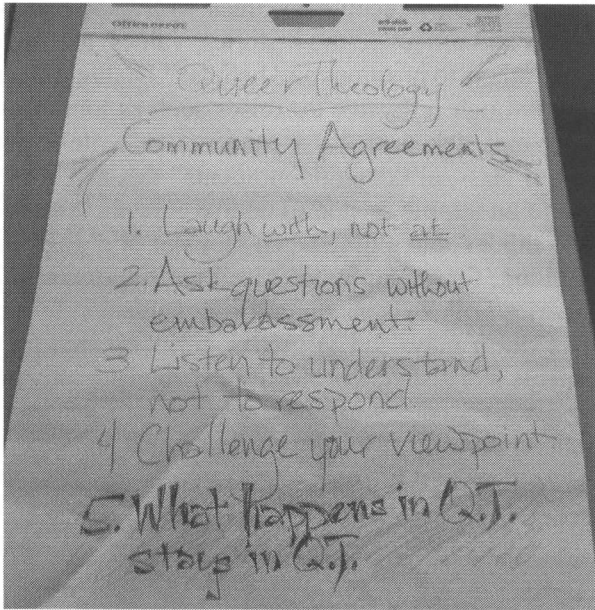 Office DEPOT
Queer Theology
Community Agreements
1. Laugh with, not at
2. Ask questions without
embarassment.
3 Listen to understand,
not to respond
4 Challenge your viewpoint
5. What happens in Q.T.
stays in Q.T.